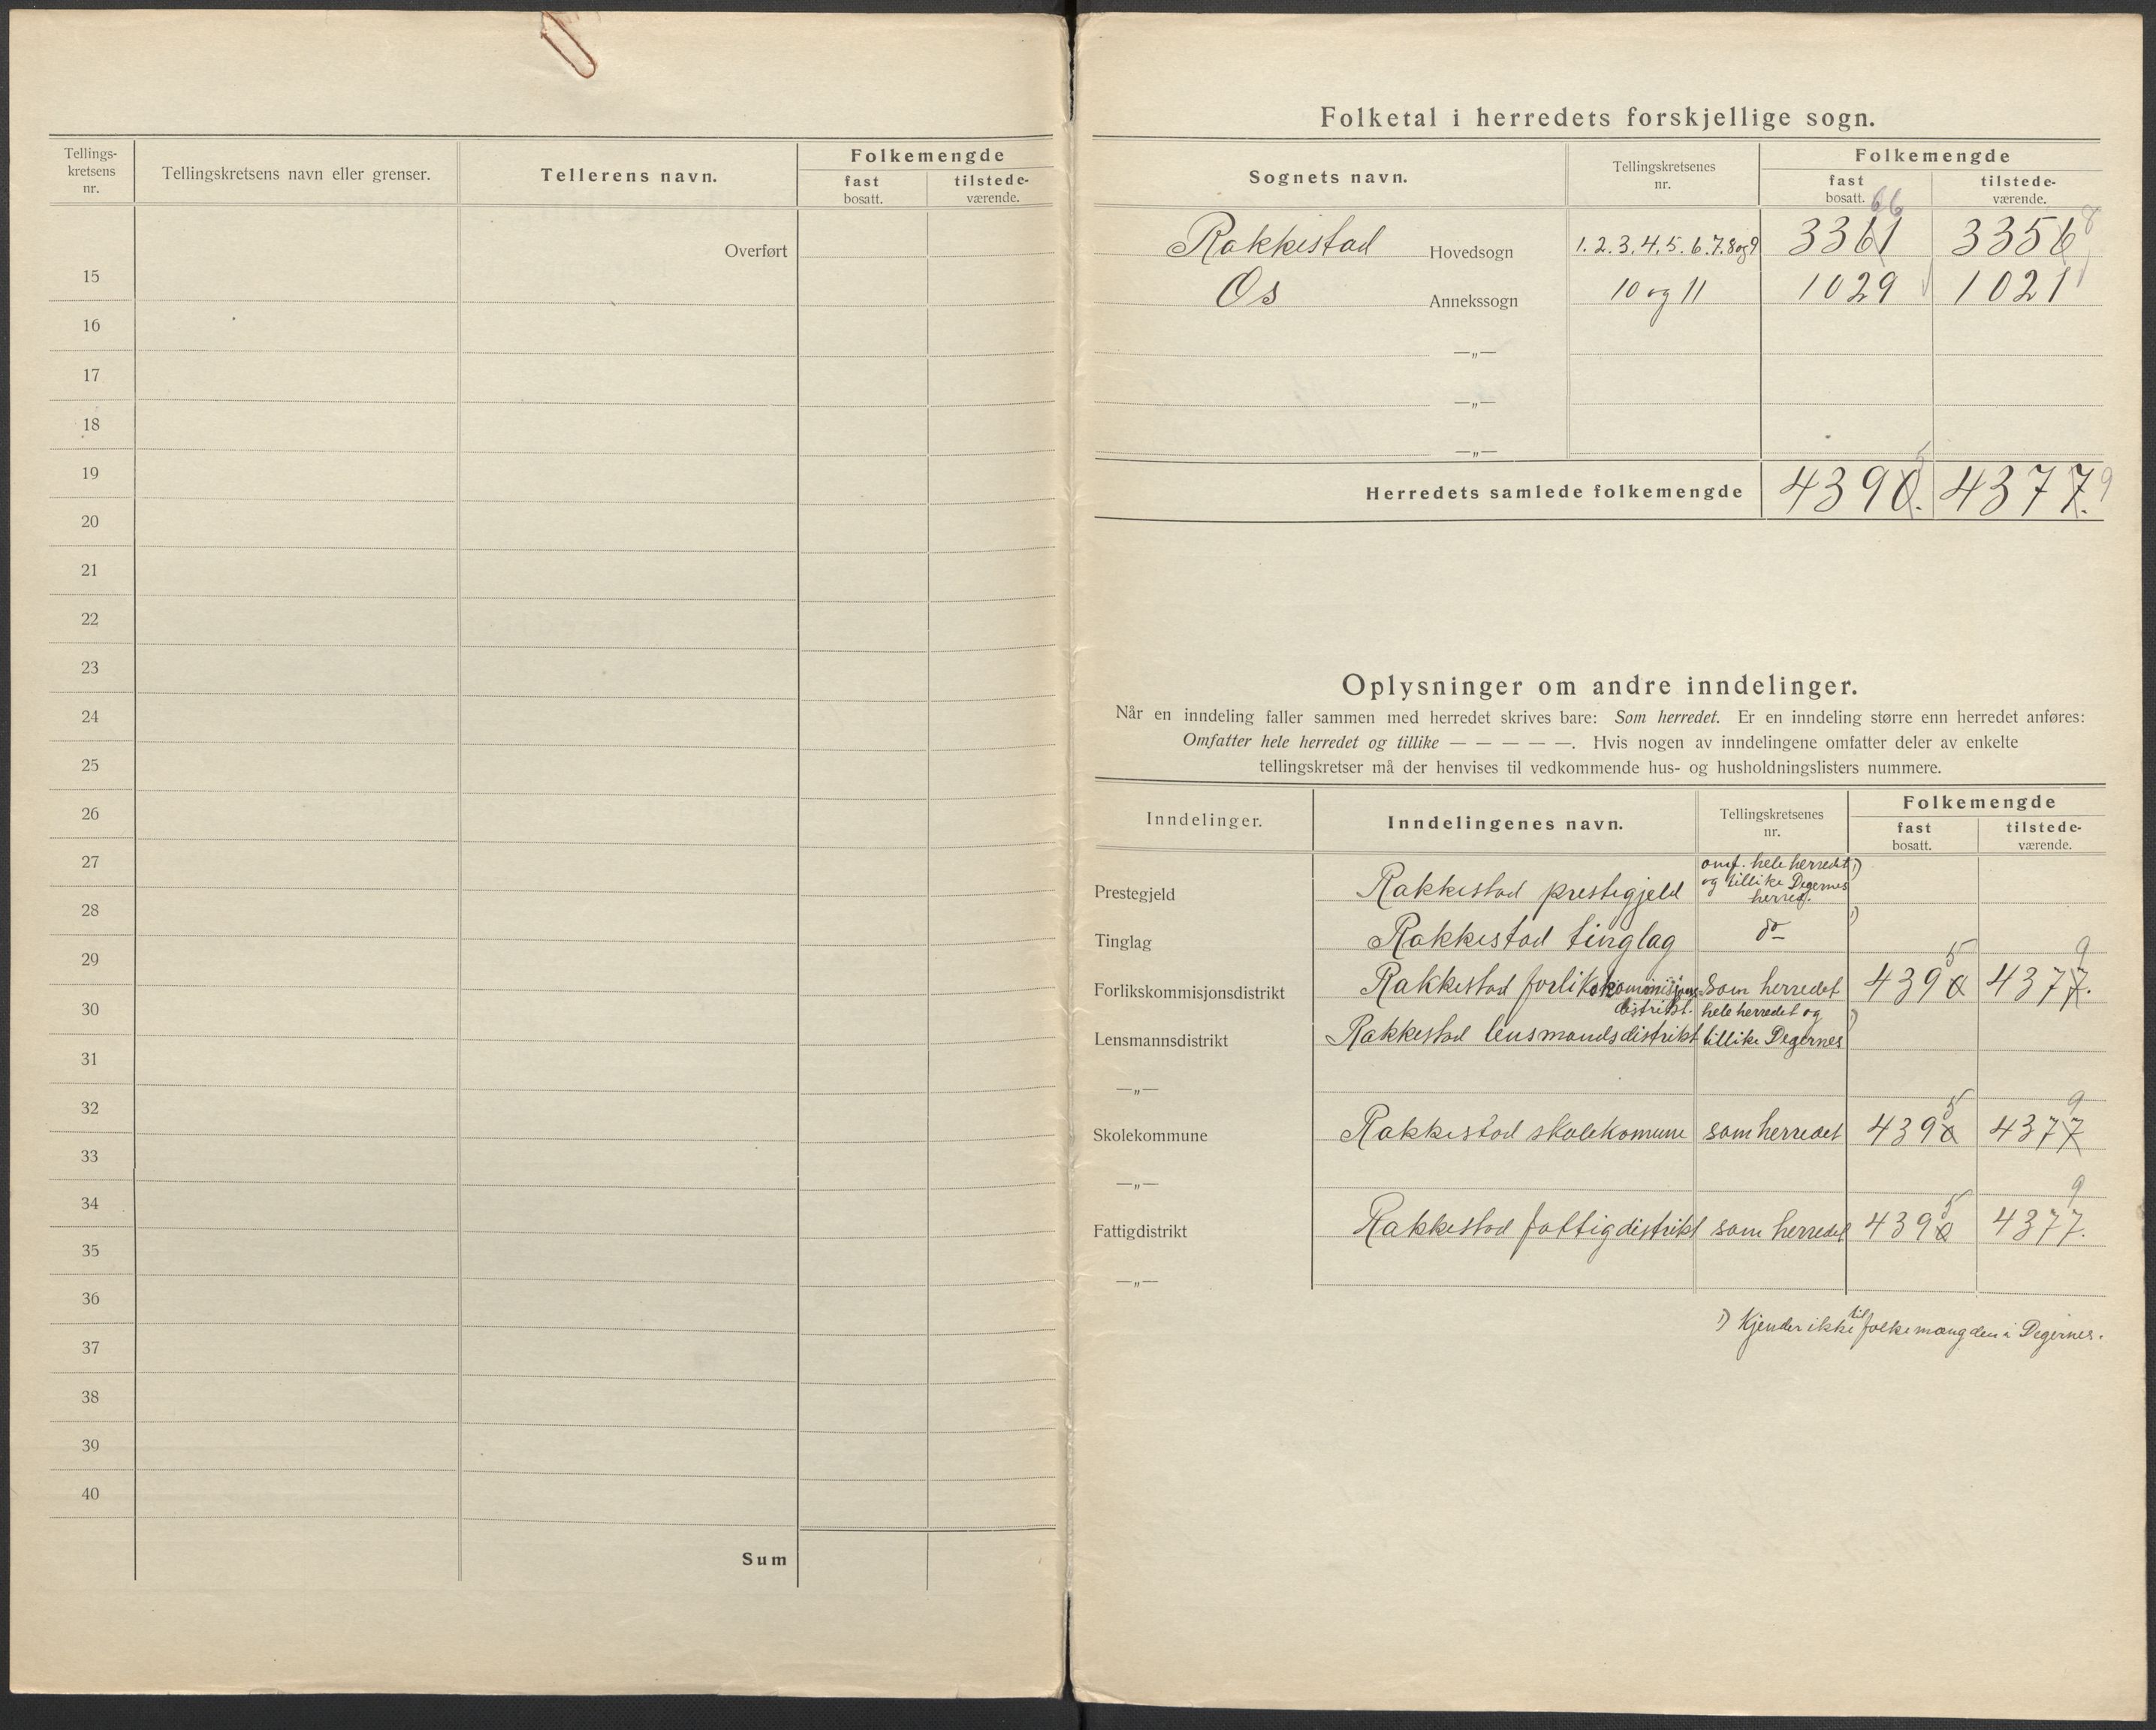 Tellings-
kretsens
nr.
Tellingskretsens navn eller grenser.
Tellerens navn.
Folkemengde
fast
bosatt.
tilstede-
værende.
Overført
15
16
17
18
19
20
21
22
23
24
25
26
27
28
29
30
31
32
33
34
35
36
37
38
39
40
Sum
Folketal i herredets forskjellige sogn.
Sognets navn.
Tellingskretsenes
nr.
Folkemengde
fast
bosatt.
tilstede-
værende.
66 8
Rakkestad Hovedsogn 1.2.3.4.5.6.7.8og9 3361 3356
Os Annekssogn 10 og 11 1029 1021
—„—
—„—
—„—
5
Herredets samlede folkemengde 4390. 4377. 9
Oplysninger om andre inndelinger.
Når en inndeling faller sammen med herredet skrives bare: Som herredet. Er en inndeling større enn herredet anføres:
Omfatter hele herredet og tillike — — — — —. Hvis nogen av inndelingene omfatter deler av enkelte
tellingskretser må der henvises til vedkommende hus- og husholdningslisters nummere.
Inndelinger.
Inndelingenes navn.
Tellingskretsenes
nr.
Folkemengde
fast
bosatt.
tilstede-
værende.
omf. hele herredet 1)
og tillike Degernes
herred.
Prestegjeld Rakkestad prestegjeld
Tinglag Rakkestad tinglag do 1)
5 9
Forlikskommisjonsdistrikt Rakkestad forlikskommisjons- Som herredet 4390 4377.
distrikt. hele herredet og 1)
Lensmannsdistrikt Rakkestad lensmandsdistrikt tillike Degernes
—„—
5 9
Skolekommune Rakkestad skolekomune som herredet 4390 4377
—„—
5 9
Fattigdistrikt Rakkestad fattigdistrikt som herredet 4390 4377.
—„—
1) Kjender ikke til folkemængden i Degernes.